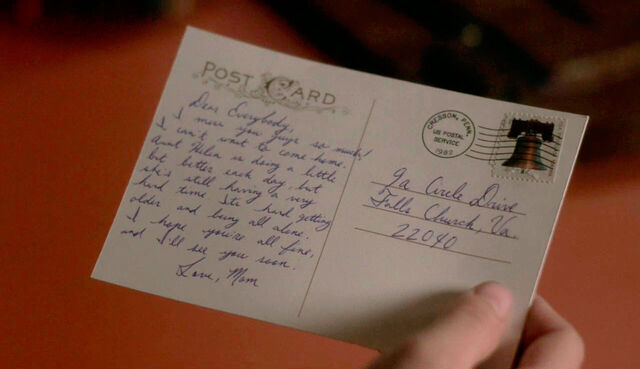 POST CARD
Dear Everybody,
I miss you guys so much!
I can't wait to come home.
Aunt Helen is doing a little
bit better each day, but
she's still having a very
hard time. It's hard getting
older and being all alone.
I hope you're all fine,
and I'll see you soon.
Love, Mom
CRESSON, PENN.
US POSTAL
SERVICE
1982
9a Circle Drive
Falls Church, Va.
22040